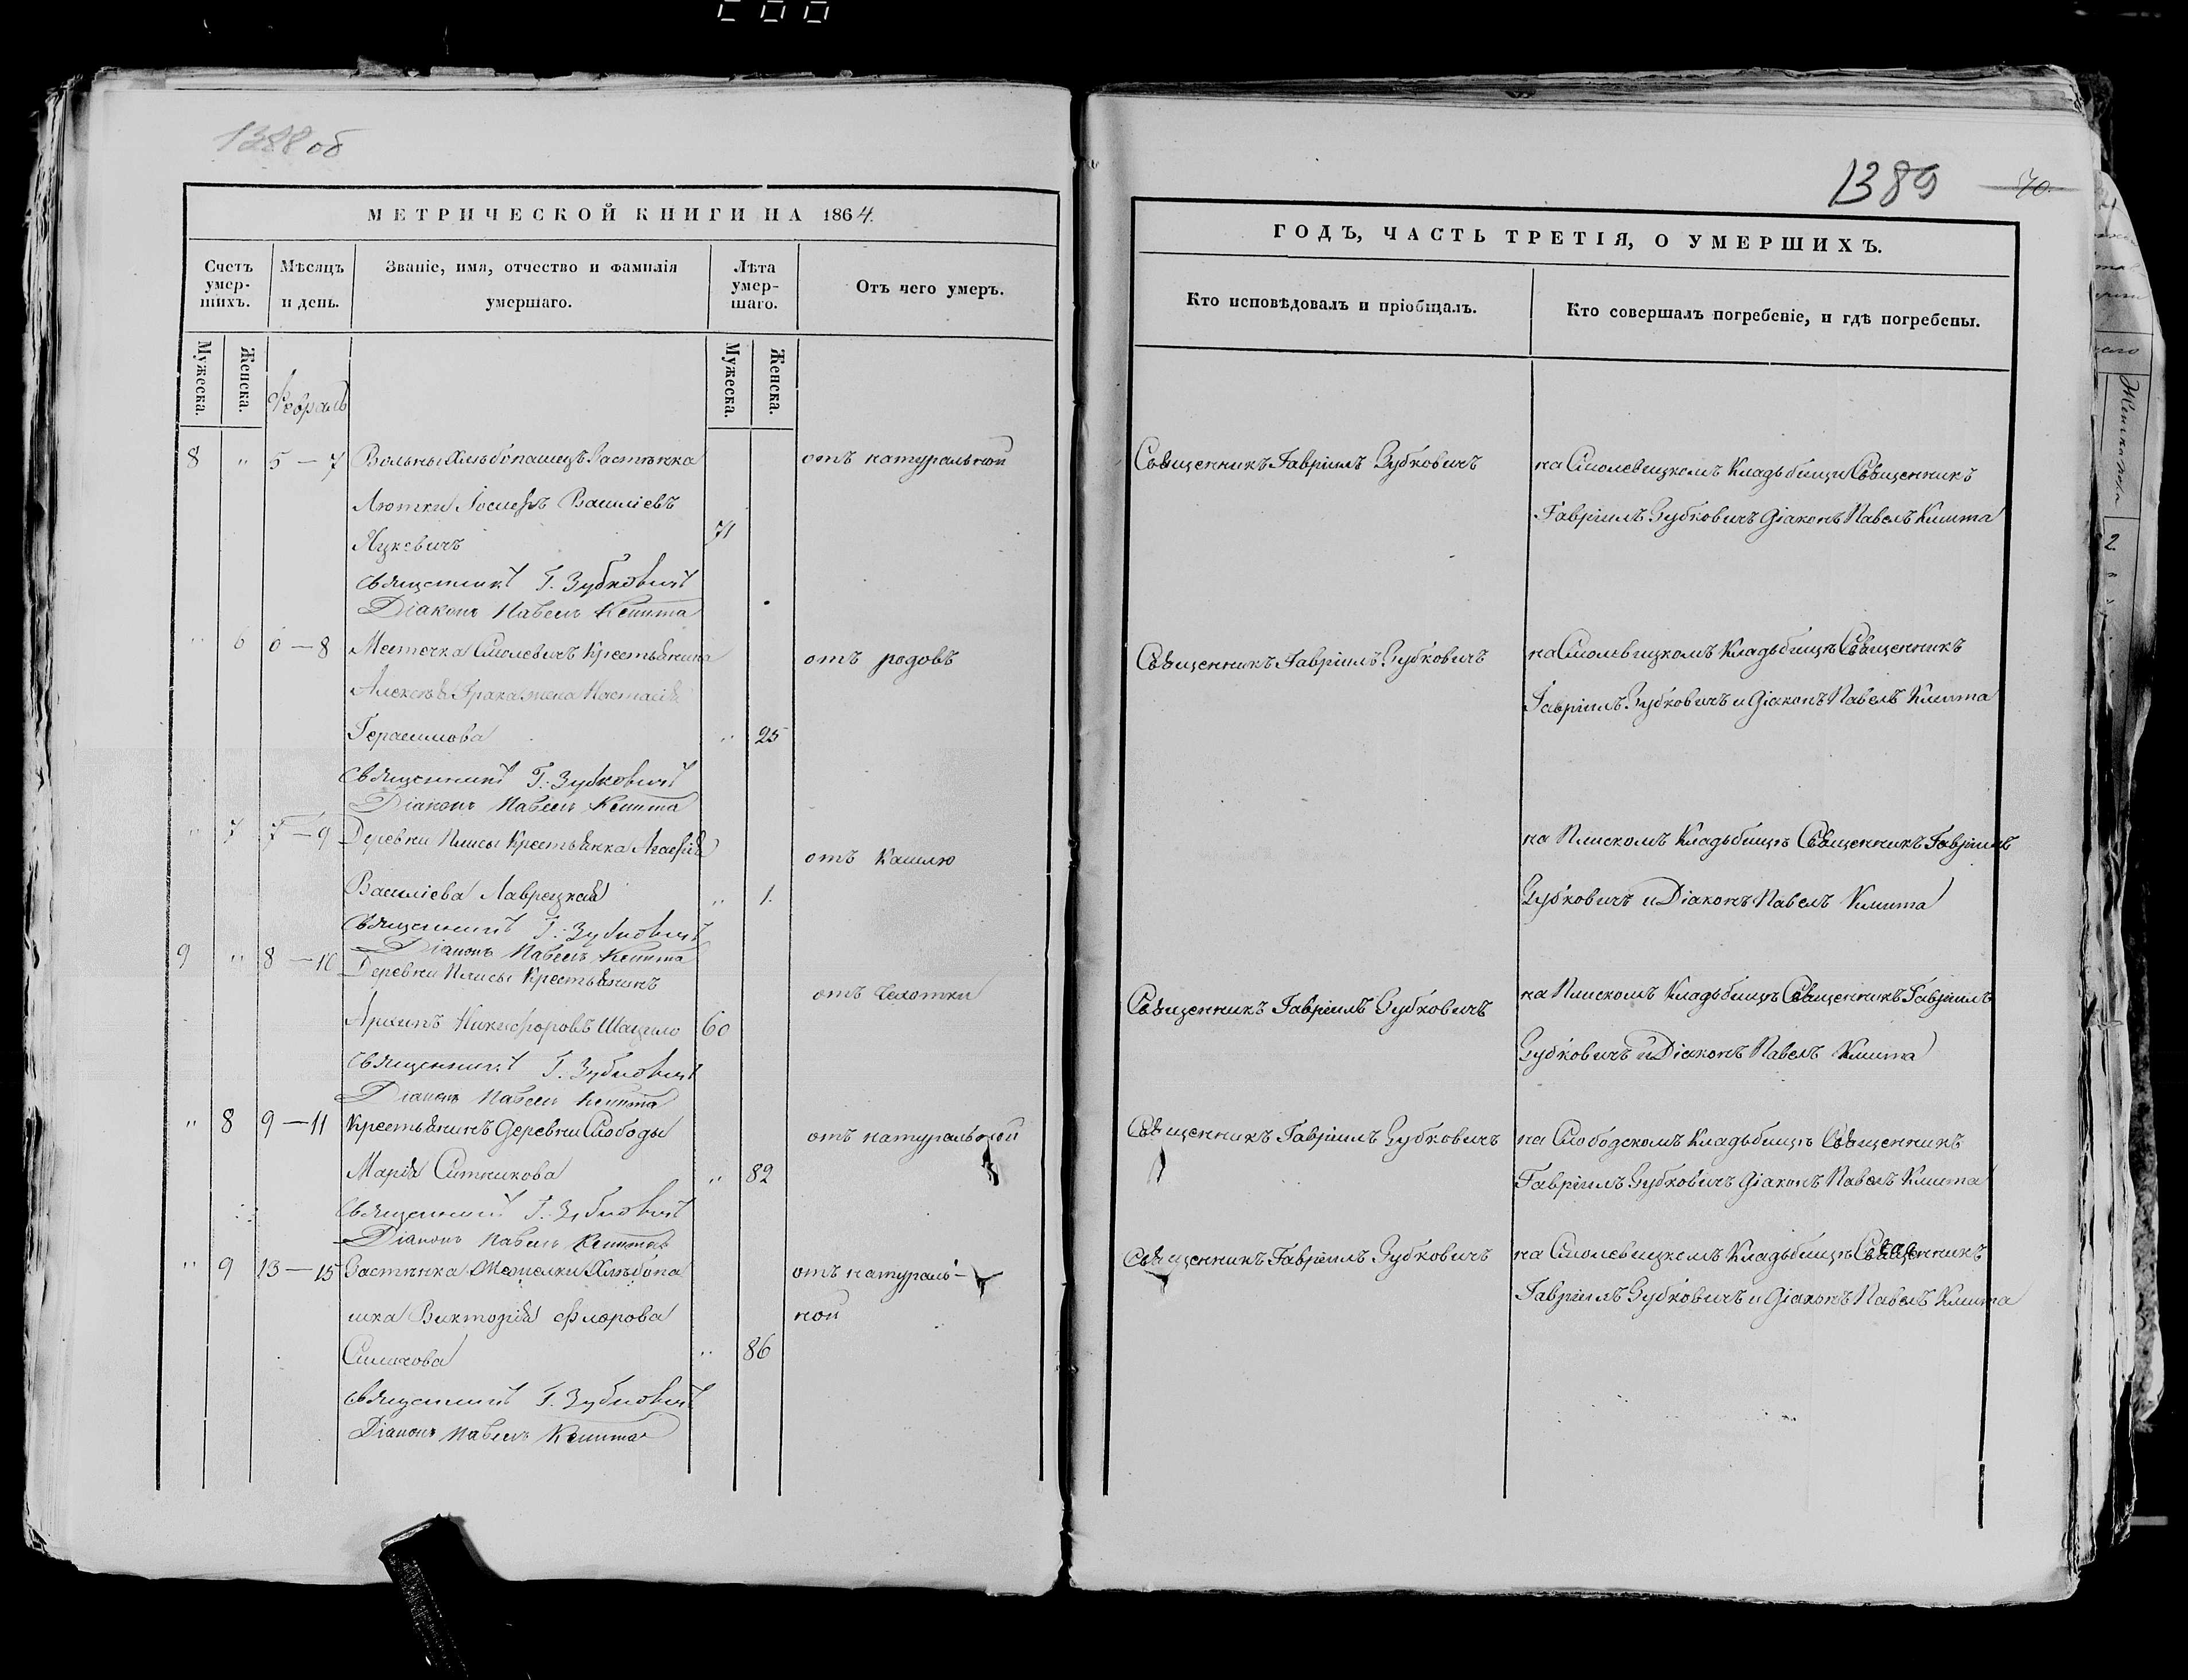 1388 об
МЕТРИЧЕСКОЙ КНИГИ НА 1864.
Счетъ умер-шихъ.
Мѣсяцъ и день.
Званіе, имя, отчество и фамилія умершаго.
Лѣта умер-шаго.
Отъ чего умеръ.
Мужеска.
Женска.
Мужеска.
Женска.
Февраль
8 " 5 — 7 Вольный Хлѣбопашецъ Застѣнка отъ натуральной
Лютки Іосифъ Василіевъ
Яцкевичъ 71
Священникъ Г. Зубковичъ
Діаконъ Павелъ Кмита
" 6 6 — 8 Местечка Смолевичъ Крестьянина отъ родовъ
Алексѣя Грака жена Настасія
Герасимова " 25
Священникъ Г. Зубковичъ
Діаконъ Павелъ Кмита
" 7 7 — 9 Деревни Плисы Крестьянка Агафія отъ Кашлю
Василіева Лаврецкая " 1.
Священникъ Г. Зубковичъ
Діаконъ Павелъ Кмита
9 " 8 — 10 Деревни Плисы Крестьянинъ отъ Чехотки
Архипъ Никифоровъ Шацило 60
Священникъ Г. Зубковичъ
Діаконъ Павелъ Кмита
" 8 9 — 11 Крестьянинъ Деревни Слободы отъ натуральной
Марія Ситникова " 82
Священникъ Г. Зубковичъ
Діаконъ Павелъ Кмита
" 9 13 — 15 Застѣнка Хлѣбопа отъ натураль-
шка Викторія Флорова ной
Симахова " 86
Священникъ Г. Зубковичъ
Діаконъ Павелъ Кмита
1389 70.
ГОДЪ, ЧАСТЬ ТРЕТІЯ, О УМЕРШИХЪ.
Кто исповѣдовалъ и пріобщалъ.
Кто совершалъ погребеніе, и гдѣ погребены.
Священникъ Гавріилъ Зубковичъ на Смолевицкомъ Кладьбищи Священникъ
Гавріилъ Зубковичъ Діаконъ Павелъ Кмита
Священникъ Гавріилъ Зубковичъ на Смолевицкомъ Кладьбищѣ Священникъ
Гавріилъ Зубковичъ и Діаконъ Павелъ Кмита
на Плискомъ Кладьбищѣ Священникъ Гавріилъ
Зубковичъ и Діаконъ Павелъ Кмита
Священникъ Гавріилъ Зубковичъ на Плискомъ Кладьбищѣ Священникъ Гавріилъ
Зубковичъ и Діаконъ Павелъ Кмита
Священникъ Гавріилъ Зубковичъ на Слободскомъ Кладьбищѣ Священникъ
Гавріилъ Зубковичъ Діаконъ Павелъ Кмита
Священникъ Гавріилъ Зубковичъ на Смолевицкомъ Кладьбищѣ Священникъ
Гавріилъ Зубковичъ и Діаконъ Павелъ Кмита